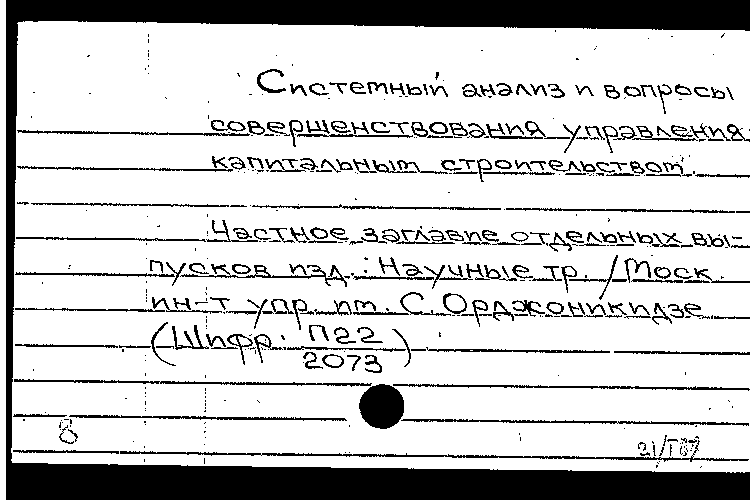 Системный анализ и вопросы
совершенствования управления
капитальным строительством.
Частное заглавие отдельных вы-
пусков изд.: Научные тр. / Моск.
ин-т упр. им. С. Орджоникидзе
(Шифр. П22/2073)
8
21/I 87